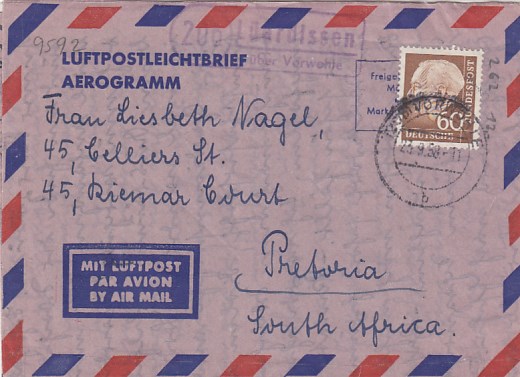 9592
(20b) Lüerdissen
über Vorwohle
LUFTPOSTLEICHTBRIEF
AEROGRAMM
Freige
Mark
60
DEUTSCHE
BUNDESPOST
Frau Liesbeth Nagel,
45, Celliers St.
45, Riemar Court
Pretoria
South Africa.
MIT LUFTPOST
PAR AVION
BY AIR MAIL
b